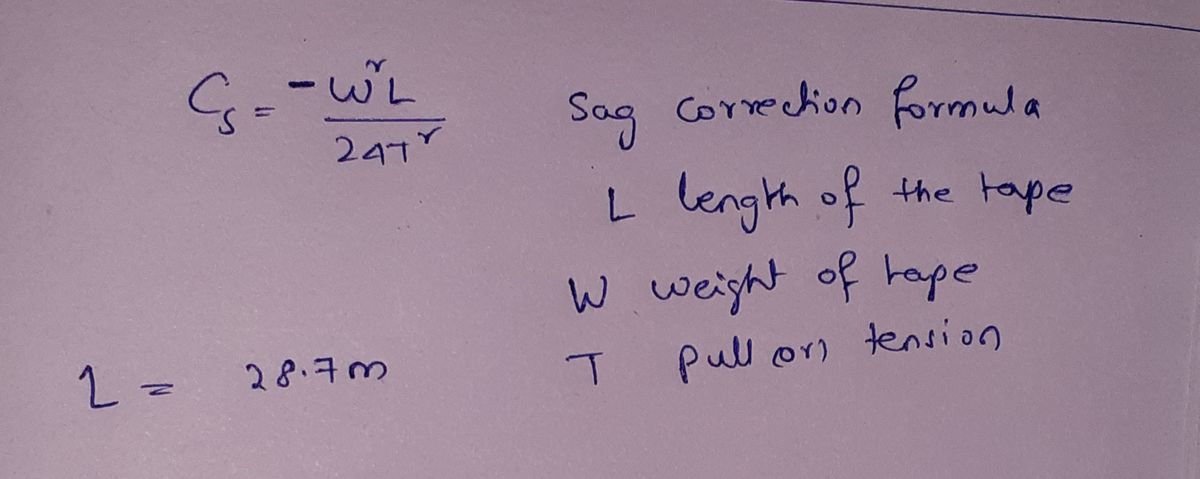 C_S = -W²L / 24T²
Sag Correction formula
L length of the tape
W weight of tape
T pull (or) tension
L = 28.7m